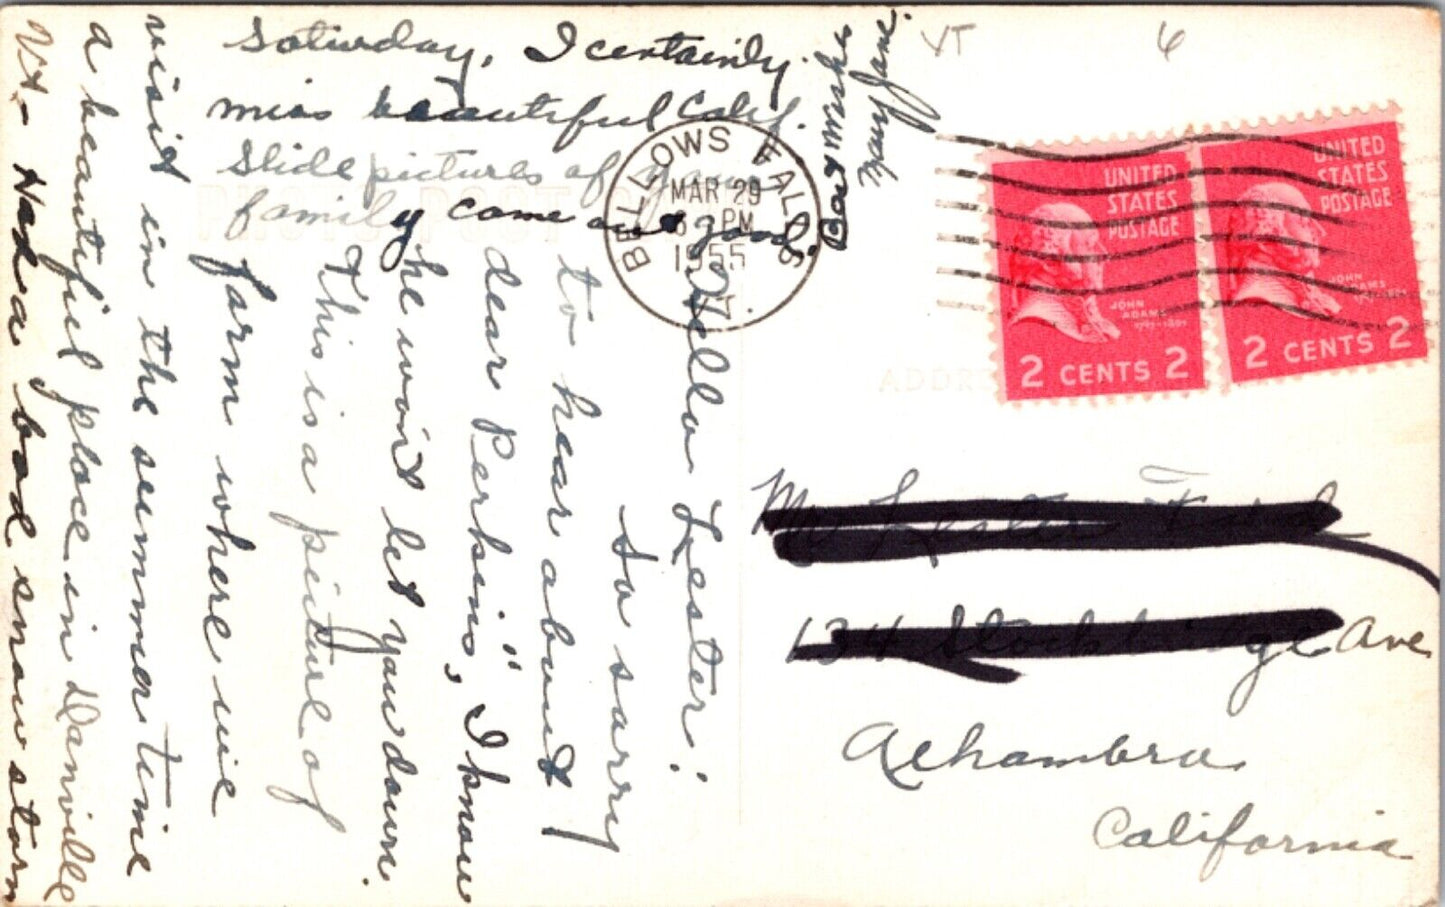 Hello Lester!
So sorry
to hear about
dear Perkins", I know
he won't let you down.
This is a picture of
farm where we
visit in the summer time
a beautiful place in Danville
Vt - Had a bad snow storm
Saturday, I certainly
miss beautiful Calif.
Slide pictures of your
family come out good.
Mary Jane
VT
6
BELLOWS FALLS
MAR 29
PM
1955
VT.
PHOTO POST
ADDRE
UNITED
STATES
POSTAGE
JOHN
ADAMS
1797-1801
2 CENTS 2
UNITED
STATES
POSTAGE
JOHN
ADAMS
1797-1801
2 CENTS 2
Mr Lester
134 Stockbridge Ave
Alhambra
California